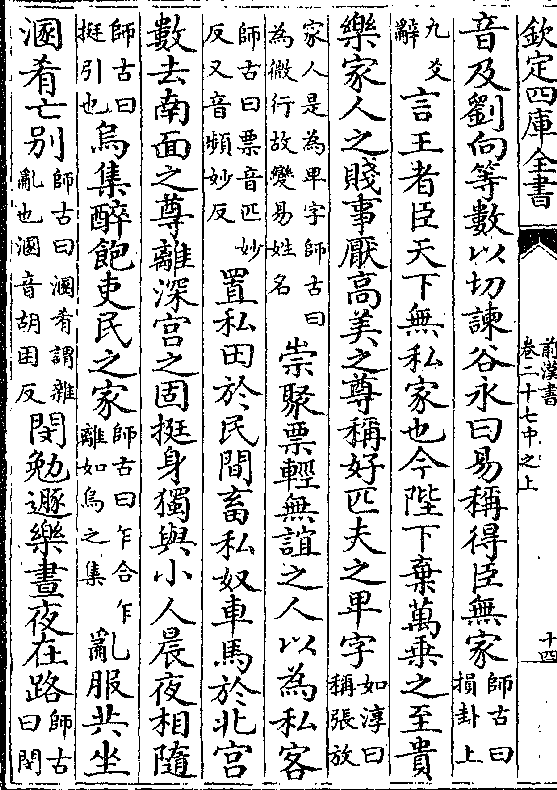 欽定四庫全書
前漢書
卷二十七中之上
十四
音及劉向等數以切諫谷永曰易稱得臣無家師古曰損卦上
九爻辭言王者臣天下無私家也今陛下棄萬乗之至貴
樂家人之賤事厭高美之尊稱好匹夫之卑字如淳曰稱張放
家人是為卑字師古曰為微行故變易姓名崇聚票輕無誼之人以為私客
師古曰票音匹妙反又音頻妙反置私田於民間畜私奴車馬於北宮
數去南面之尊離深宮之固挺身獨與小人晨夜相隨
師古曰挺引也烏集醉飽吏民之家師古曰乍合乍離如烏之集亂服共坐
溷肴亡別師古曰溷肴謂雜亂也溷音胡困反閔勉遯樂晝夜在路師古曰閔